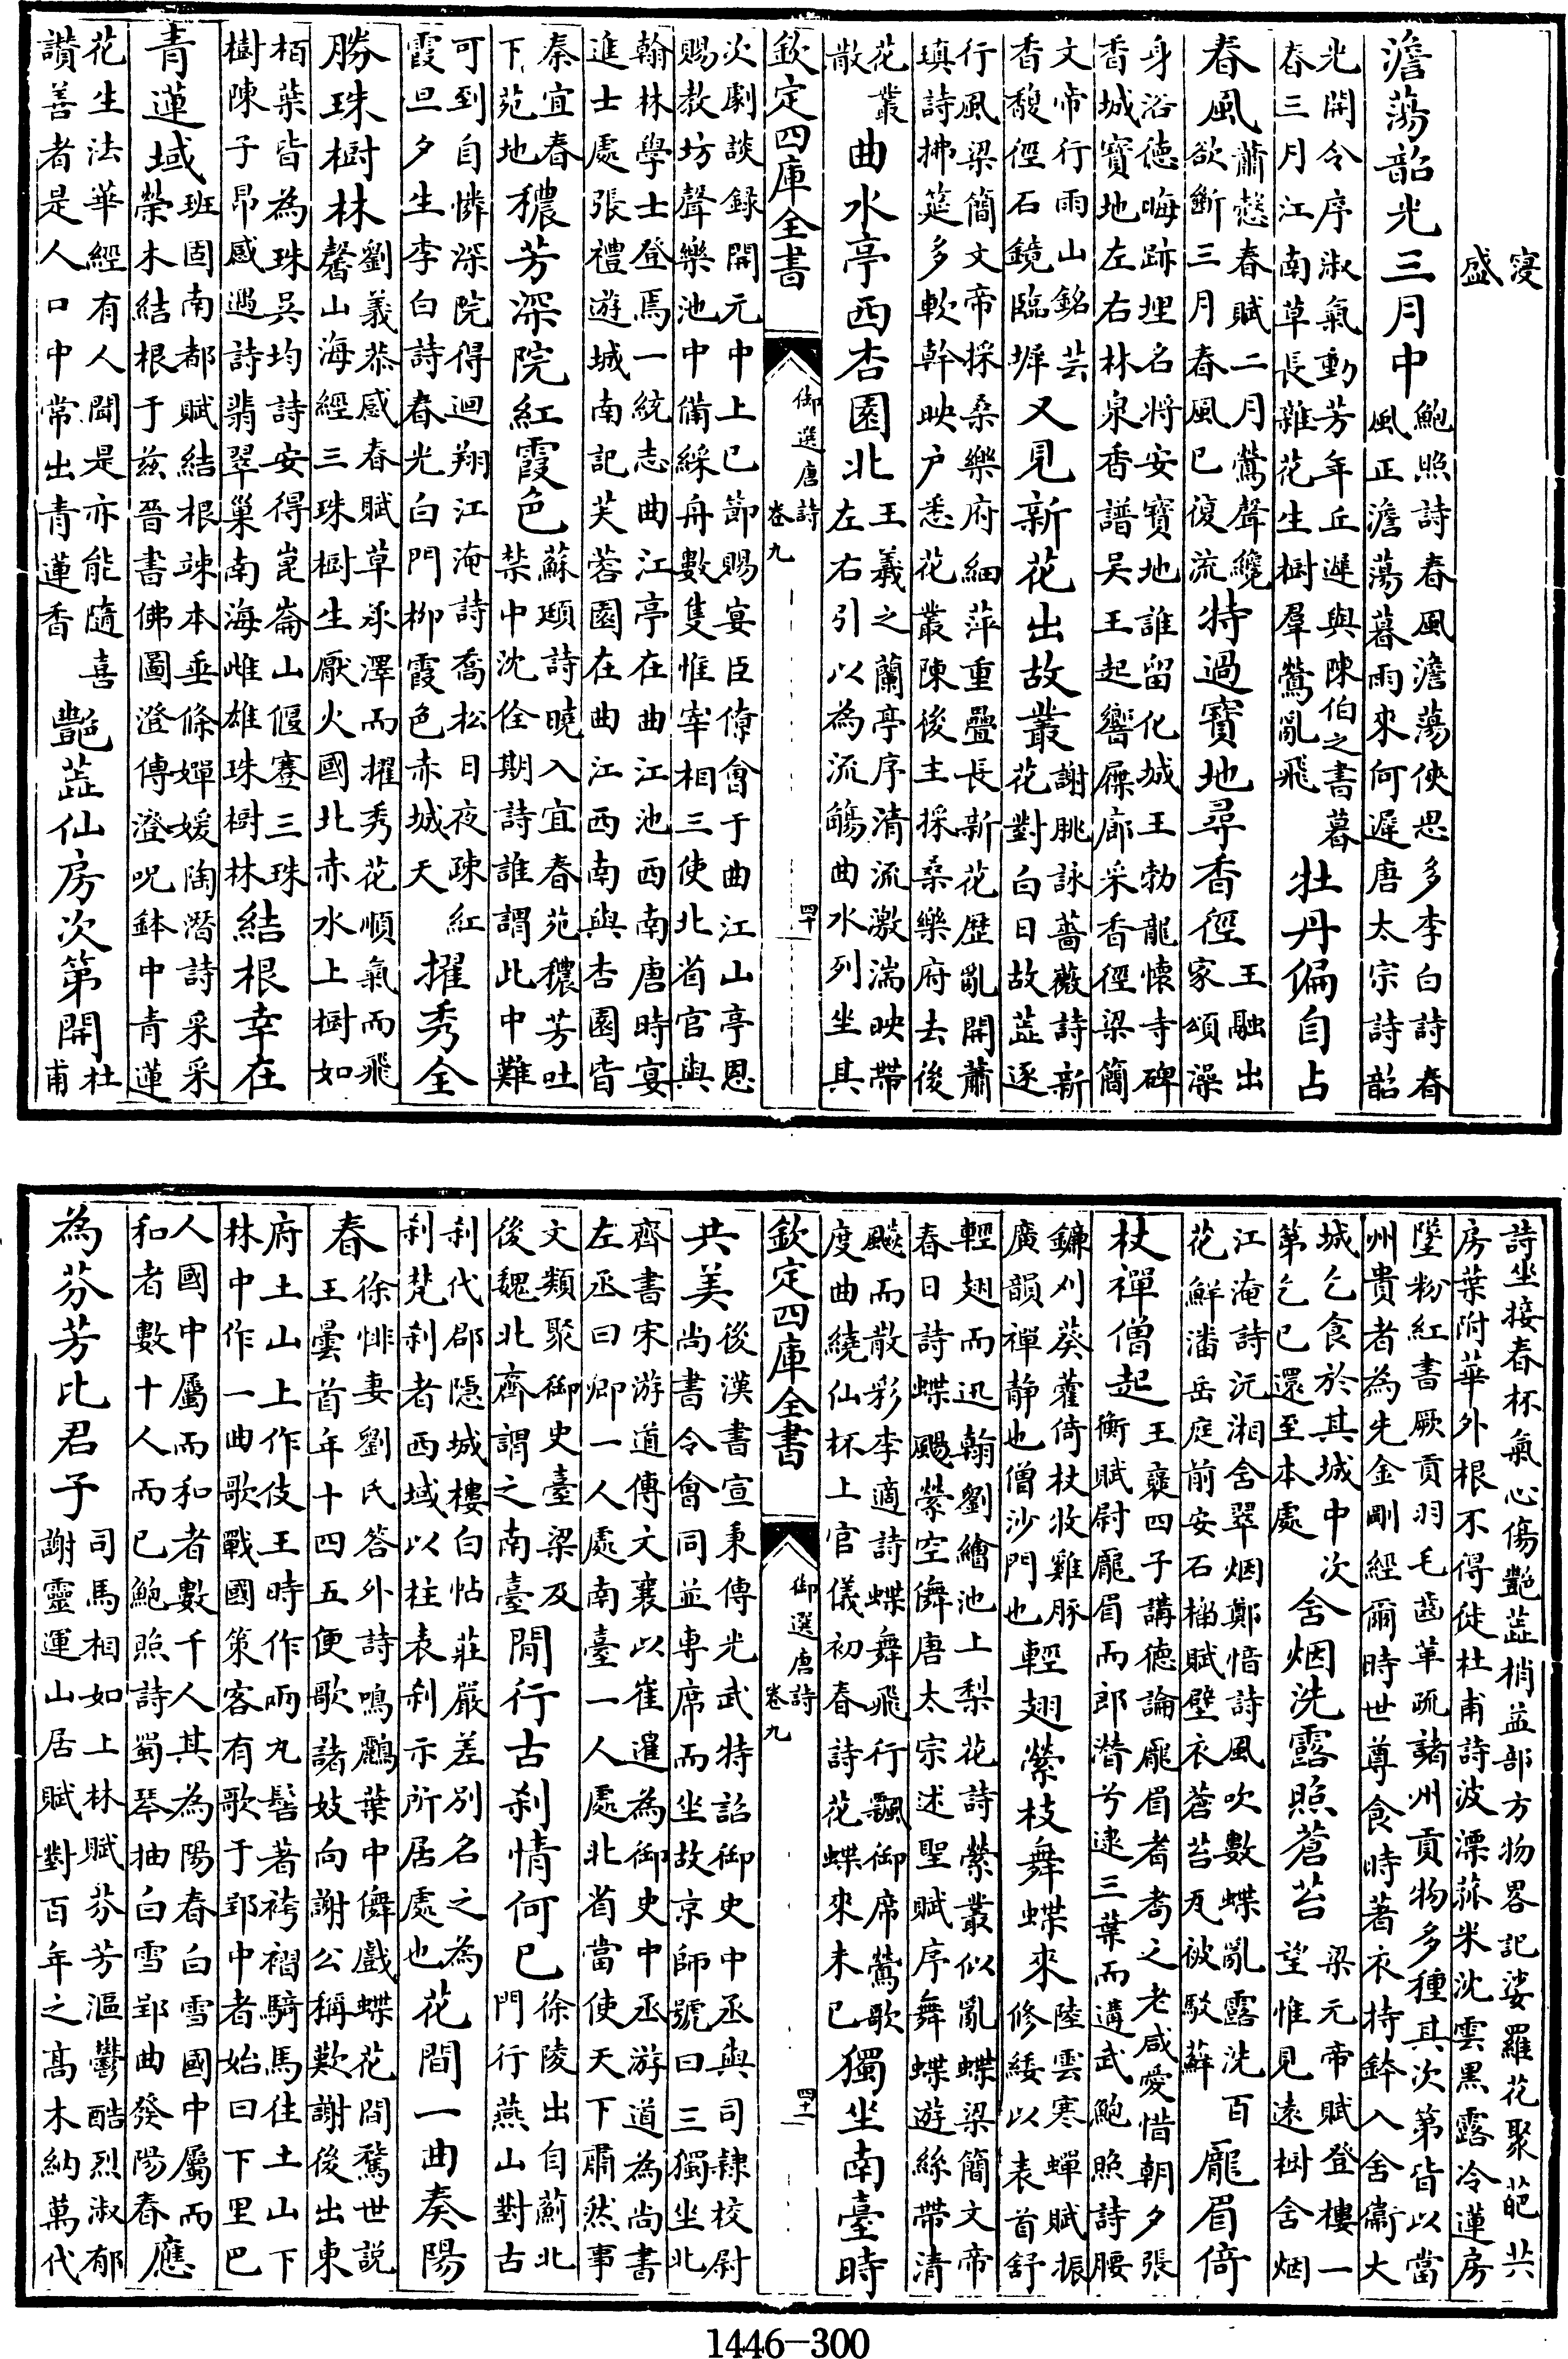 寖
盛
澹蕩韶光三月中 鮑照詩春風澹蕩俠思多李白詩春
風正澹蕩暮雨來何遲唐太宗詩韶
光開令序淑氣動芳年丘遲與陳伯之書暮
春三月江南草長雜花生樹羣鶯亂飛 牡丹偏自占
春風 蕭慤春賦二月鶯聲纔
欲斷三月春風已復流 特過寶地尋香徑 王融出
家頌澡
身浴德晦跡埋名將安寶地誰留化城王勃龍懷寺碑
香城寶地左右林泉香譜吳王起響屧廊采香徑梁簡
文帝行雨山銘芸
香馥徑石鏡臨墀 又見新花出故叢 謝朓詠薔薇詩新
花對白日故蕋逐
行風梁簡文帝採桑樂府細萍重疊長新花歷亂開蕭
瑱詩拂筵多軟幹映户悉花叢陳後主採桑樂府去後
花叢
散 曲水亭西杏園北 王羲之蘭亭序清流激湍映帶
左右引以為流觴曲水列坐其
欽定四庫全書 御選唐詩 卷九 四十
次劇談録開元中上巳節賜宴臣僚會于曲江山亭恩
賜教坊聲樂池中備綵舟數隻惟宰相三使北省官與
翰林學士登焉一統志曲江亭在曲江池西南唐時宴
進士處張禮遊城南記芙蓉園在曲江西南與杏園皆
秦宜春
下苑地 穠芳深院紅霞色 蘇頲詩曉入宜春苑穠芳吐
禁中沈佺期詩誰謂此中難
可到自憐深院得迴翔江淹詩喬松日夜竦紅
霞旦夕生李白詩春光白門柳霞色赤城天 擢秀全
勝珠樹林 劉義恭感春賦草承澤而擢秀花順氣而飛
馨山海經三珠樹生厭火國北赤水上樹如
栢葉皆為珠吳均詩安得崑崙山偃蹇三珠
樹陳子昂感遇詩翡翠巢南海雌雄珠樹林 結根幸在
青蓮域 班固南都賦結根竦本垂條嬋媛陶潛詩采采
榮木結根于茲晉書佛圖澄傳澄呪鉢中青蓮
花生法華經有人聞是亦能隨喜
讚善者是人口中常出青蓮香 艷蕋仙房次第開 杜
甫
詩坐接春杯氣心傷艷蕋梢益部方物畧記娑羅花聚葩共
房葉附華外根不得徙杜甫詩波漂菰米沈雲黑露冷蓮房
墜粉紅書厥貢羽毛齒革疏諸州貢物多種其次第皆以當
州貴者為先金剛經爾時世尊食時著衣持鉢入舍衞大
城乞食於其城中次
第乞已還至本處 含烟洗露照蒼苔 梁元帝賦登樓一
望惟見遠樹含烟
江淹詩沅湘含翠烟鄭愔詩風吹數蝶亂露洗百
花鮮潘岳庭前安石榴賦壁衣蒼苔瓦被駮蘚 龎眉倚
杖禪僧起 王襃四子講德論龎眉耆耇之老咸愛惜朝夕張
衡賦尉龎眉而郎潛兮逮三葉而遘武鮑照詩腰
鐮刈葵藿倚杖收雞豚
廣韻禪静也僧沙門也 輕翅縈枝舞蝶來 陸雲寒蟬賦振
修緌以表首舒
輕翅而迅翰劉繪池上梨花詩縈叢似亂蝶梁簡文帝
春日詩蝶颺縈空儛唐太宗述聖賦序舞蝶遊絲帶清
飈而散彩李適詩蝶舞飛行飄御席鶯歌
度曲繞仙杯上官儀初春詩花蝶來未已 獨坐南臺時
欽定四庫全書 御選唐詩 卷九 四十一
共美 後漢書宣秉傳光武特詔御史中丞與司隷校尉
尚書令會同並専席而坐故京師號曰三獨坐北
齊書宋游道傳文襄以崔暹為御史中丞游道為尚書
左丞曰卿一人處南臺一人處北省當使天下肅然事
文類聚御史臺梁及
後魏北齊謂之南臺 閒行古刹情何已 徐陵出自薊北
門行燕山對古
刹代郡隱城樓白帖 莊嚴差别名之為
刹梵刹者西域以柱表刹示所居處也 花間一曲奏陽
春 徐悱妻劉氏答外詩鳴鸝葉中儛戲蝶花間騖世説
王曇首年十四五便歌諸妓向謝公稱歎謝後出東
府土山上作伎王時作兩丸髻著袴褶騎馬往土山下
林中作一曲歌戰國策客有歌于郢中者始曰下里巴
人國中屬而和者數千人其為陽春白雪國中屬而
和者數十人而已鮑照詩蜀琴抽白雪郢曲發陽春 應
為芬芳比君子 司馬相如上林賦芬芳漚鬱酷烈淑郁
謝靈運山居賦對百年之高木納萬代
1446-300